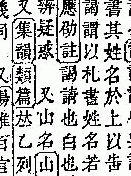 書其姓名於上以
謁謂以札書姓名若
應劭註謁請也白也
辨疑惑 又山名山
又集韻類篇𠀤乙列
同 又